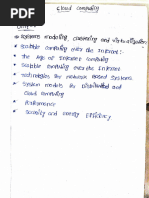 Cloud computing
Unit-I
* Systems modeling, clustering and virtualization:-
* Scalable computing over the Internet:-
* The Age of Internet computing
* Scalable computing over the Internet
* Technologies for network based systems
* System models for Distributed and
Cloud computing
* Performance
* Security and energy Efficiency